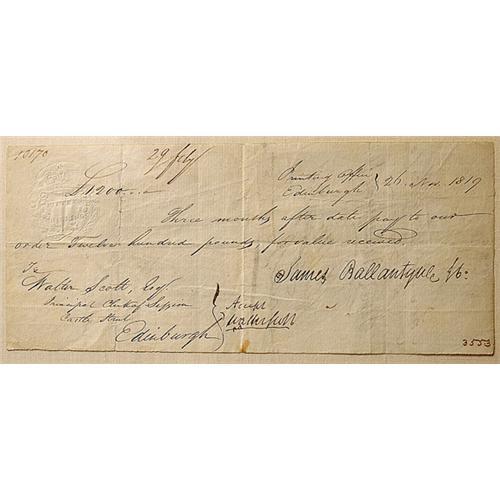 29 feby
£1200..–
Printing office
Edinburgh } 26. Nov. 1819
Three months after date pay to our
order Twelve hundred pounds, for value received.
To
Walter Scott, Esqr.
Principal Clerk of Session
Castle Street
Edinburgh
Accept
Walter Scott
James Ballantyne & Co.
3553